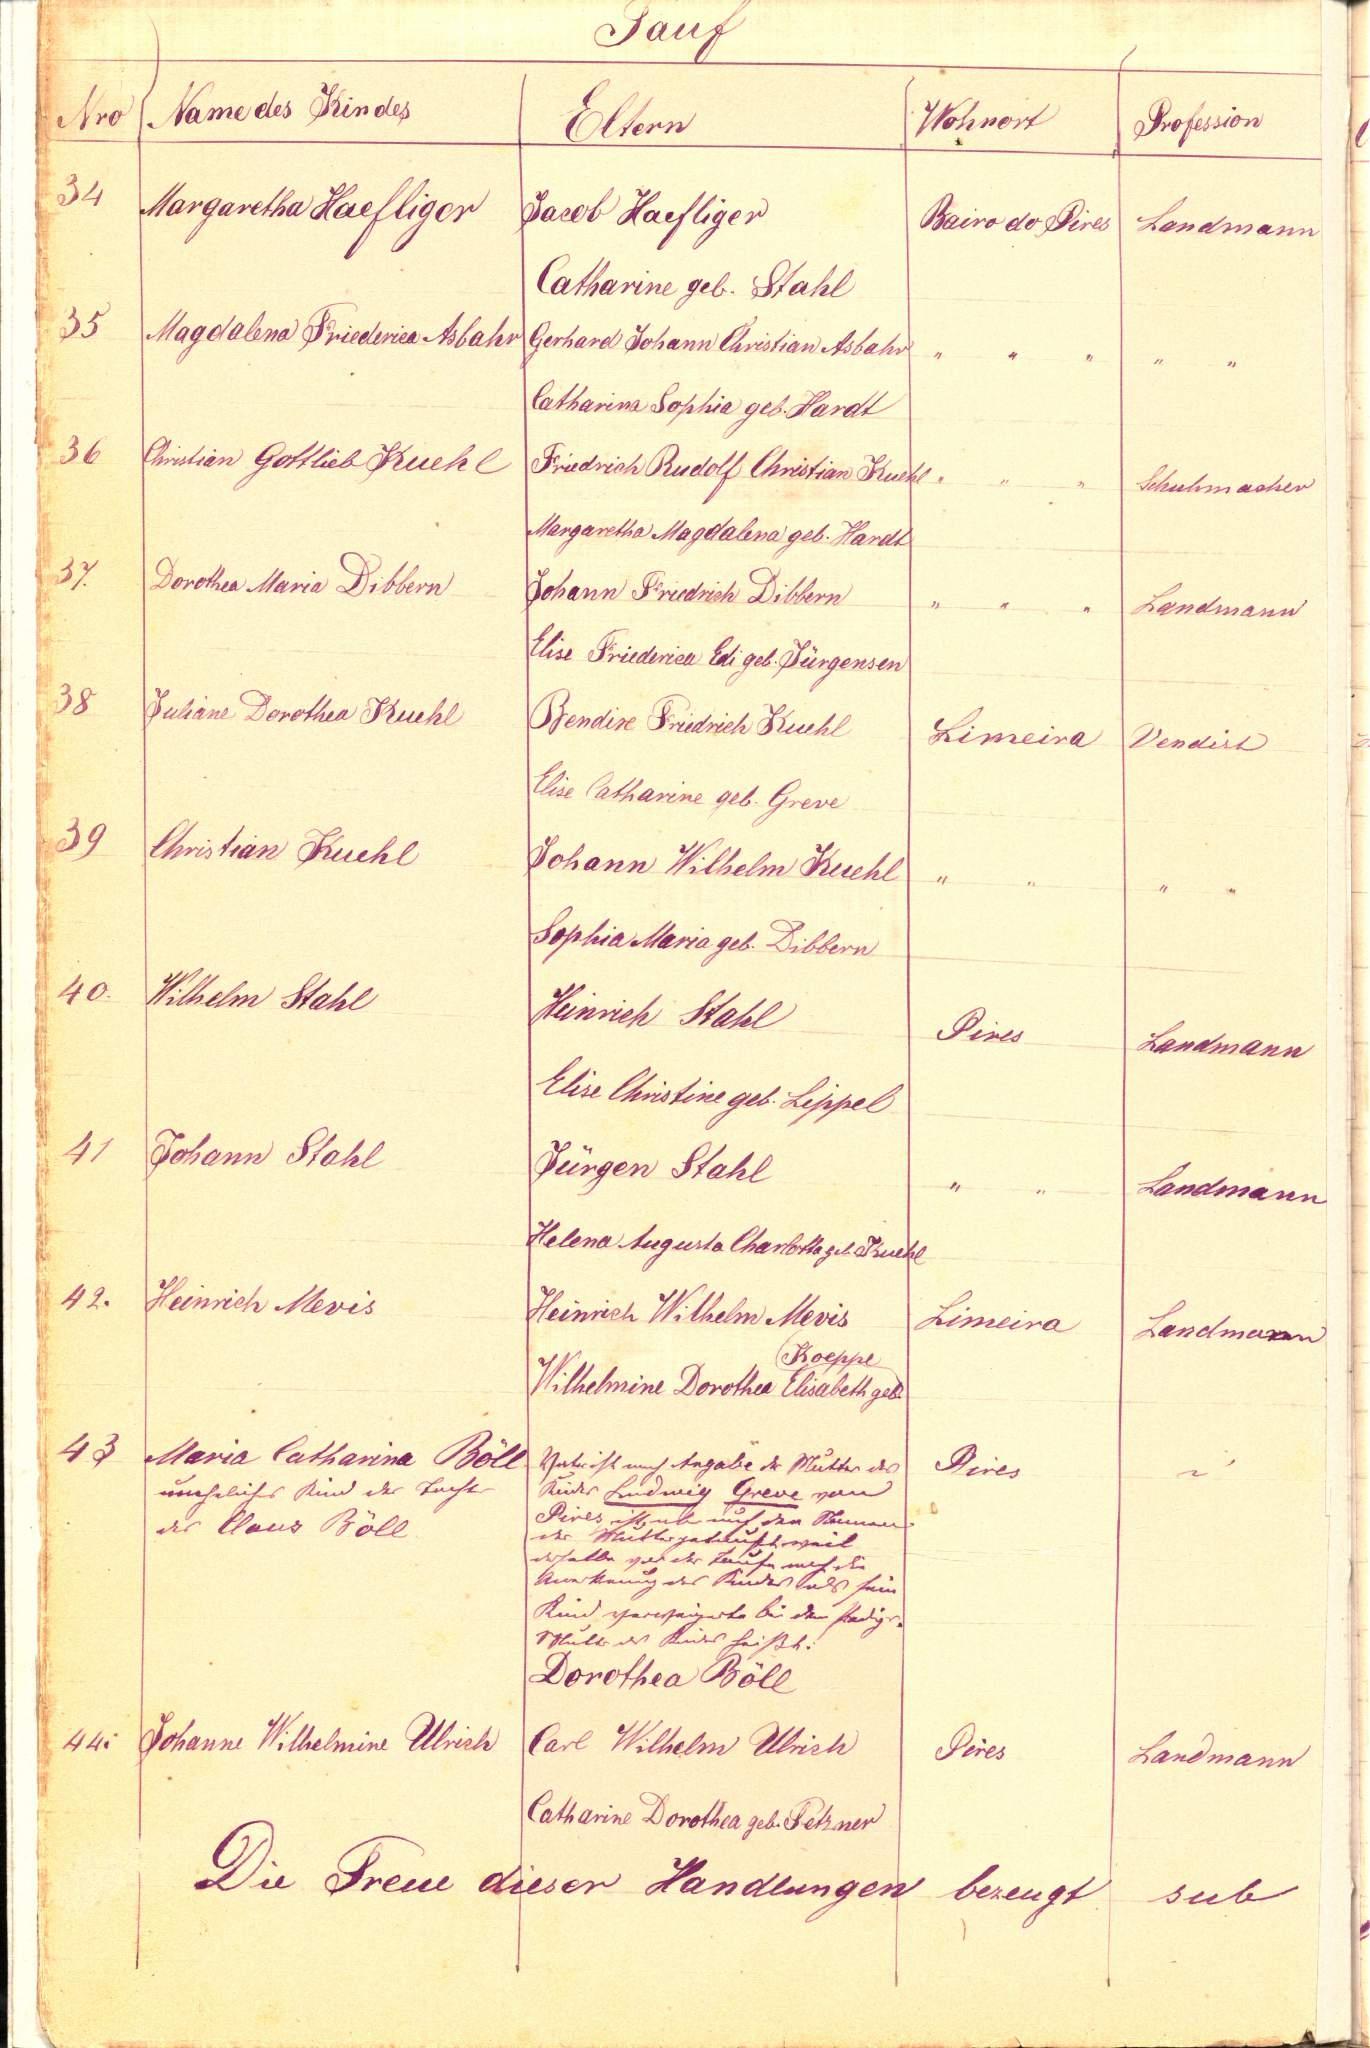 Tauf
Nro Name des Kindes Eltern Wohnort Profession
34 Margaretha Haefliger Jacob Haefliger Bairo do Pires Landmann
Catharine geb. Stahl
35 Magdalena Friederica Asbahr Gerhard Johann Christian Asbahr " " " " "
Catharina Sophia geb. Hardt
36 Christian Gottlieb Kuehl Friedrich Rudolf Christian Kuehl " " " Schuhmacher
Margaretha Magdalena geb. Hardt
37. Dorothea Maria Dibbern Johann Friedrich Dibbern " " " Landmann
Elise Friederica Edi geb. Jürgensen
38 Juliane Dorothea Kuehl Bendixe Friedrich Kuehl Limeira Vendist
Elise Catharine geb. Greve
39 Christian Kuehl Johann Wilhelm Kuehl " " " "
Sophia Maria geb. Dibbern
40. Wilhelm Stahl Heinrich Stahl Pires Landmann
Elise Christine geb. Lippel
41 Johann Stahl Jürgen Stahl " " Landmann
Helena Augusta Charlotta geb. Kuehl
42. Heinrich Mevis Heinrich Wilhelm Mevis Limeira Landmann
Koeppe
Wilhelmine Dorothea Elisabeth geb.
43 Maria Catharina Böll Vater ist nach Angabe der Mutter des Pires "
uneheliches Kind der Tochter Kindes Ludwig Greve von
des Claus Böll Pires ist auf den Namen
der Mutter getauft weil
derselbe vor der Taufe noch die
Anerkennung des Kindes als sein
Kind verweigerte bei dem
Mutter des Kindes heißt:
Dorothea Böll
44. Johanne Wilhelmine Ulrich Carl Wilhelm Ulrich Pires Landmann
Catharine Dorothea geb. Petzner
Die Treue dieser Handlungen bezeugt sub